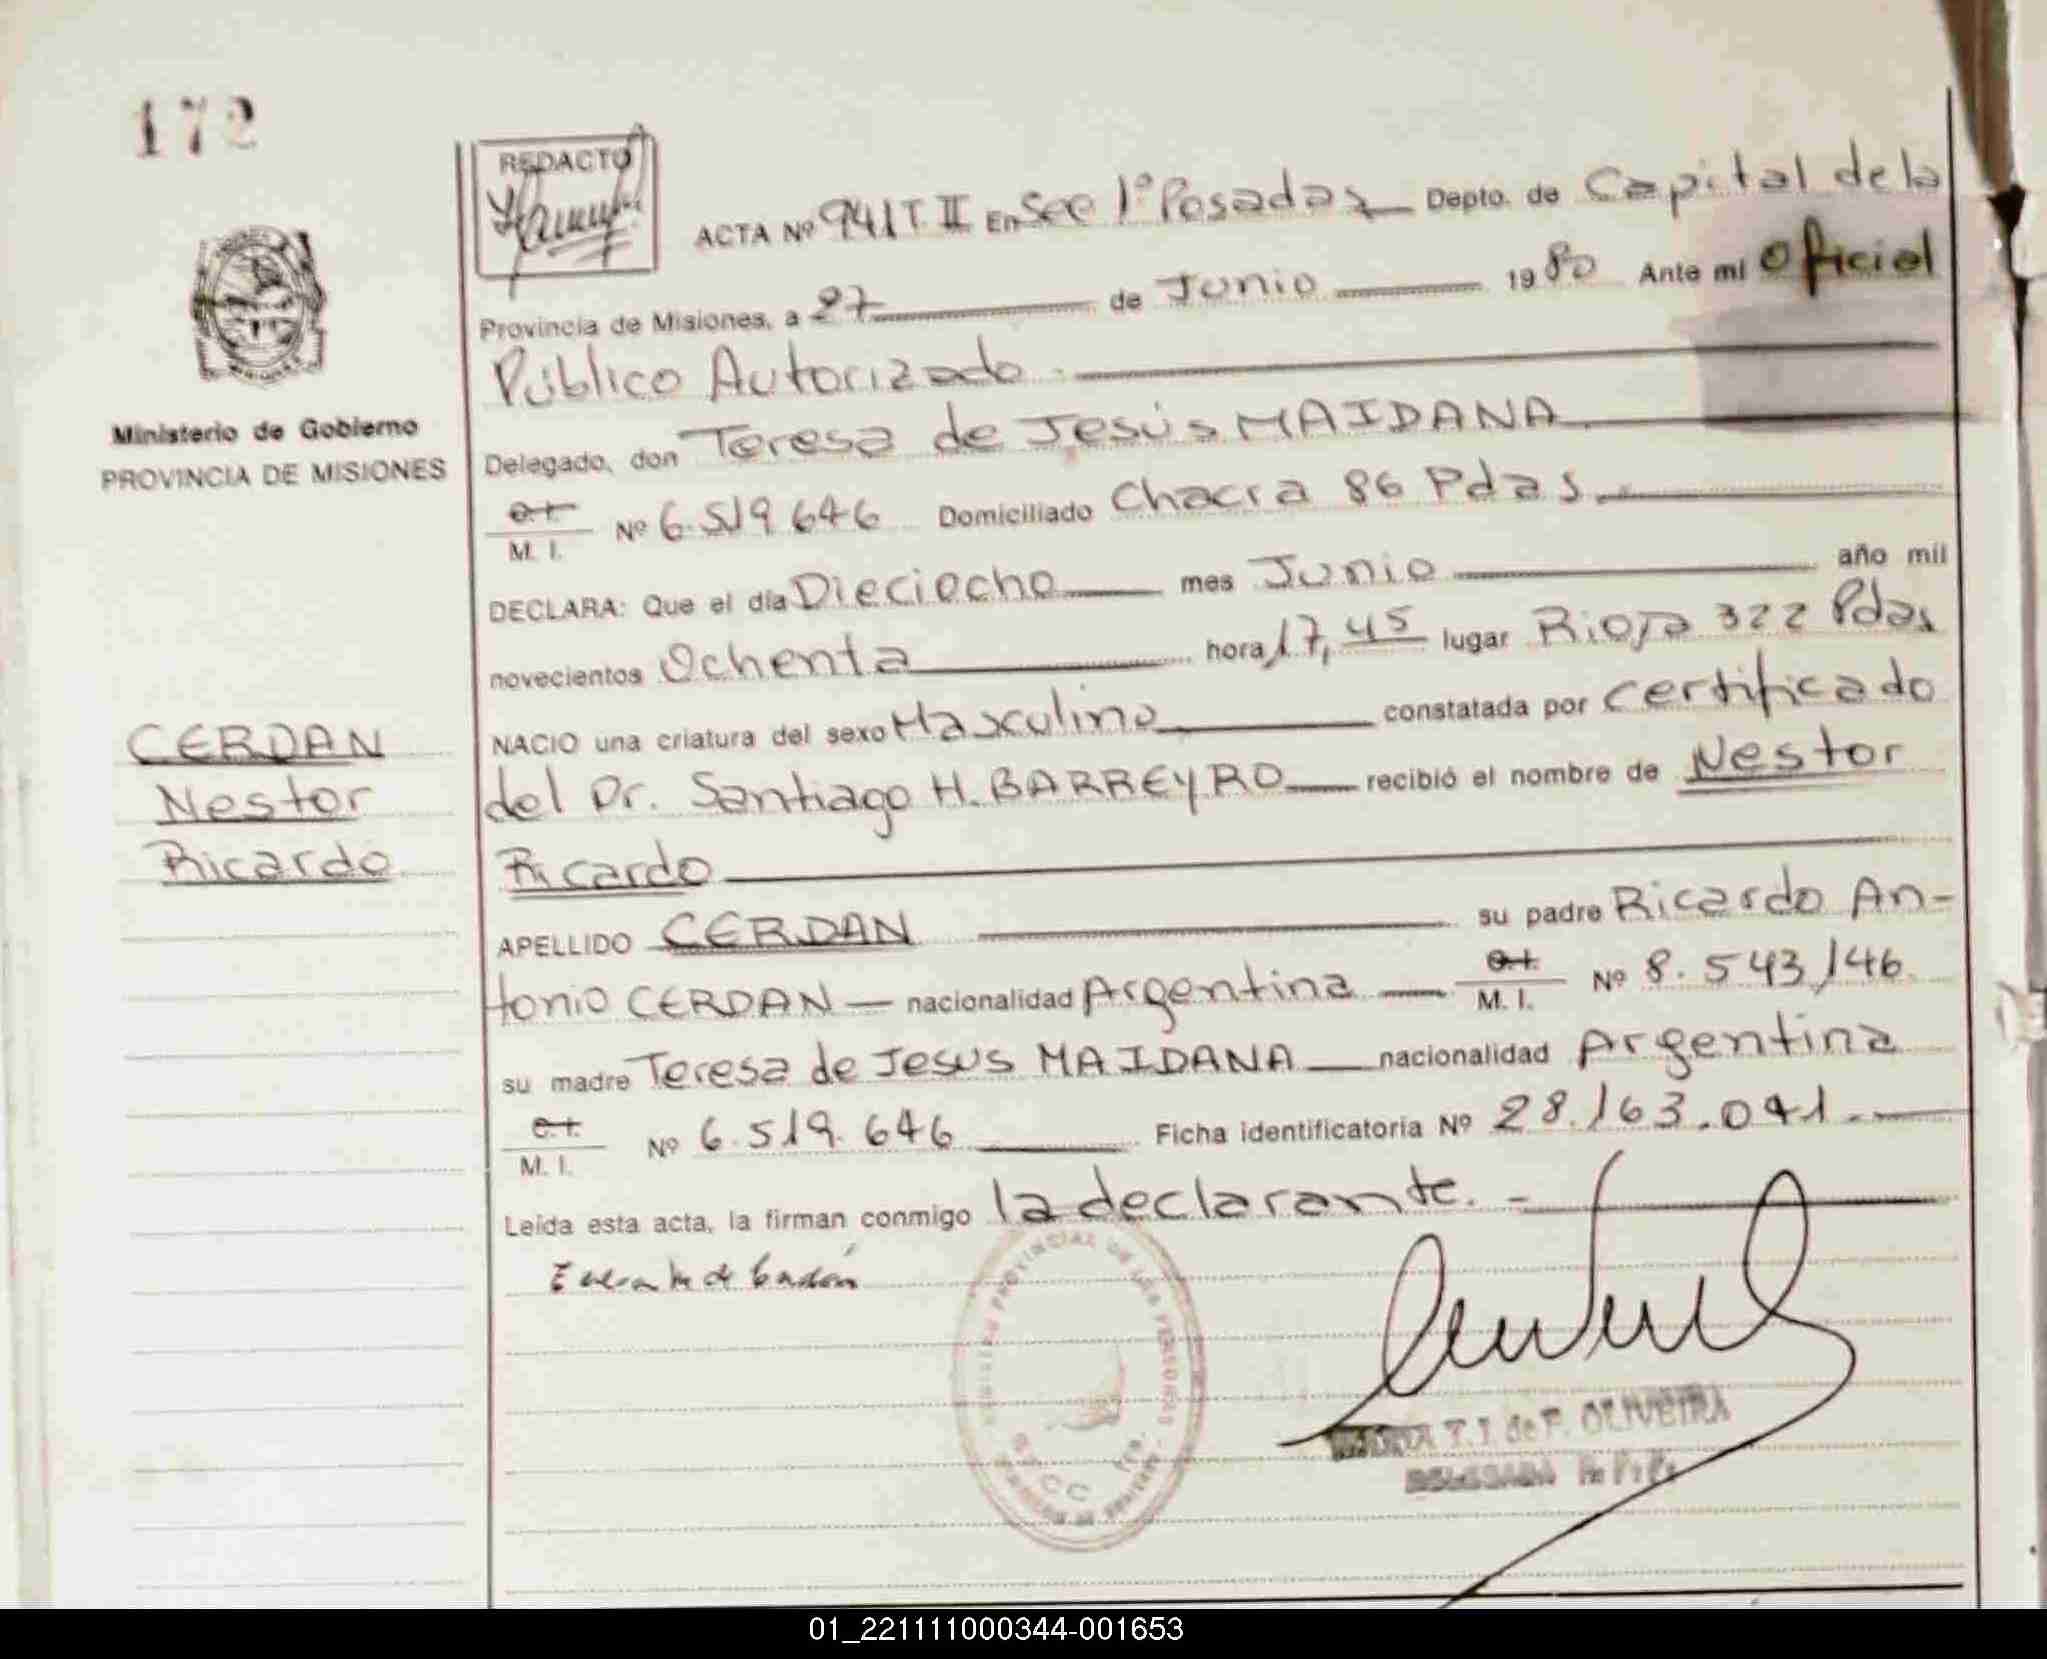 172
REDACTO
ACTA Nº 941 T II En Sec 1º Posadas Depto. de Capital de la
Provincia de Misiones, a 27 de Junio 1980 Ante mi Oficial
Público Autorizado
Ministerio de Gobierno
PROVINCIA DE MISIONES
Delegado, don Teresa de Jesús MAIDANA
C.I.
M. I. Nº 6.519.646 Domiciliado Chacra 86 Pdas
DECLARA: Que el día Dieciocho mes Junio año mil
novecientos Ochenta hora 17,45 lugar Rioja 322 Pdas
NACIO una criatura del sexo Masculino constatada por certificado
del Dr. Santiago H. BARREYRO recibió el nombre de Nestor
Ricardo
CERDAN
Nestor
Ricardo
APELLIDO CERDAN su padre Ricardo An-
tonio CERDAN nacionalidad Argentina C.I. M. I. Nº 8.543.146
su madre Teresa de Jesus MAIDANA nacionalidad Argentina
C.I.
M. I. Nº 6.519.646 Ficha identificatoria Nº 28.163.041.-
Leída esta acta, la firman conmigo la declarante. -
REGISTRO PROVINCIAL DE LAS PERSONAS
T. J. de F. OLIVEIRA
DELEGADA
01_221111000344-001653